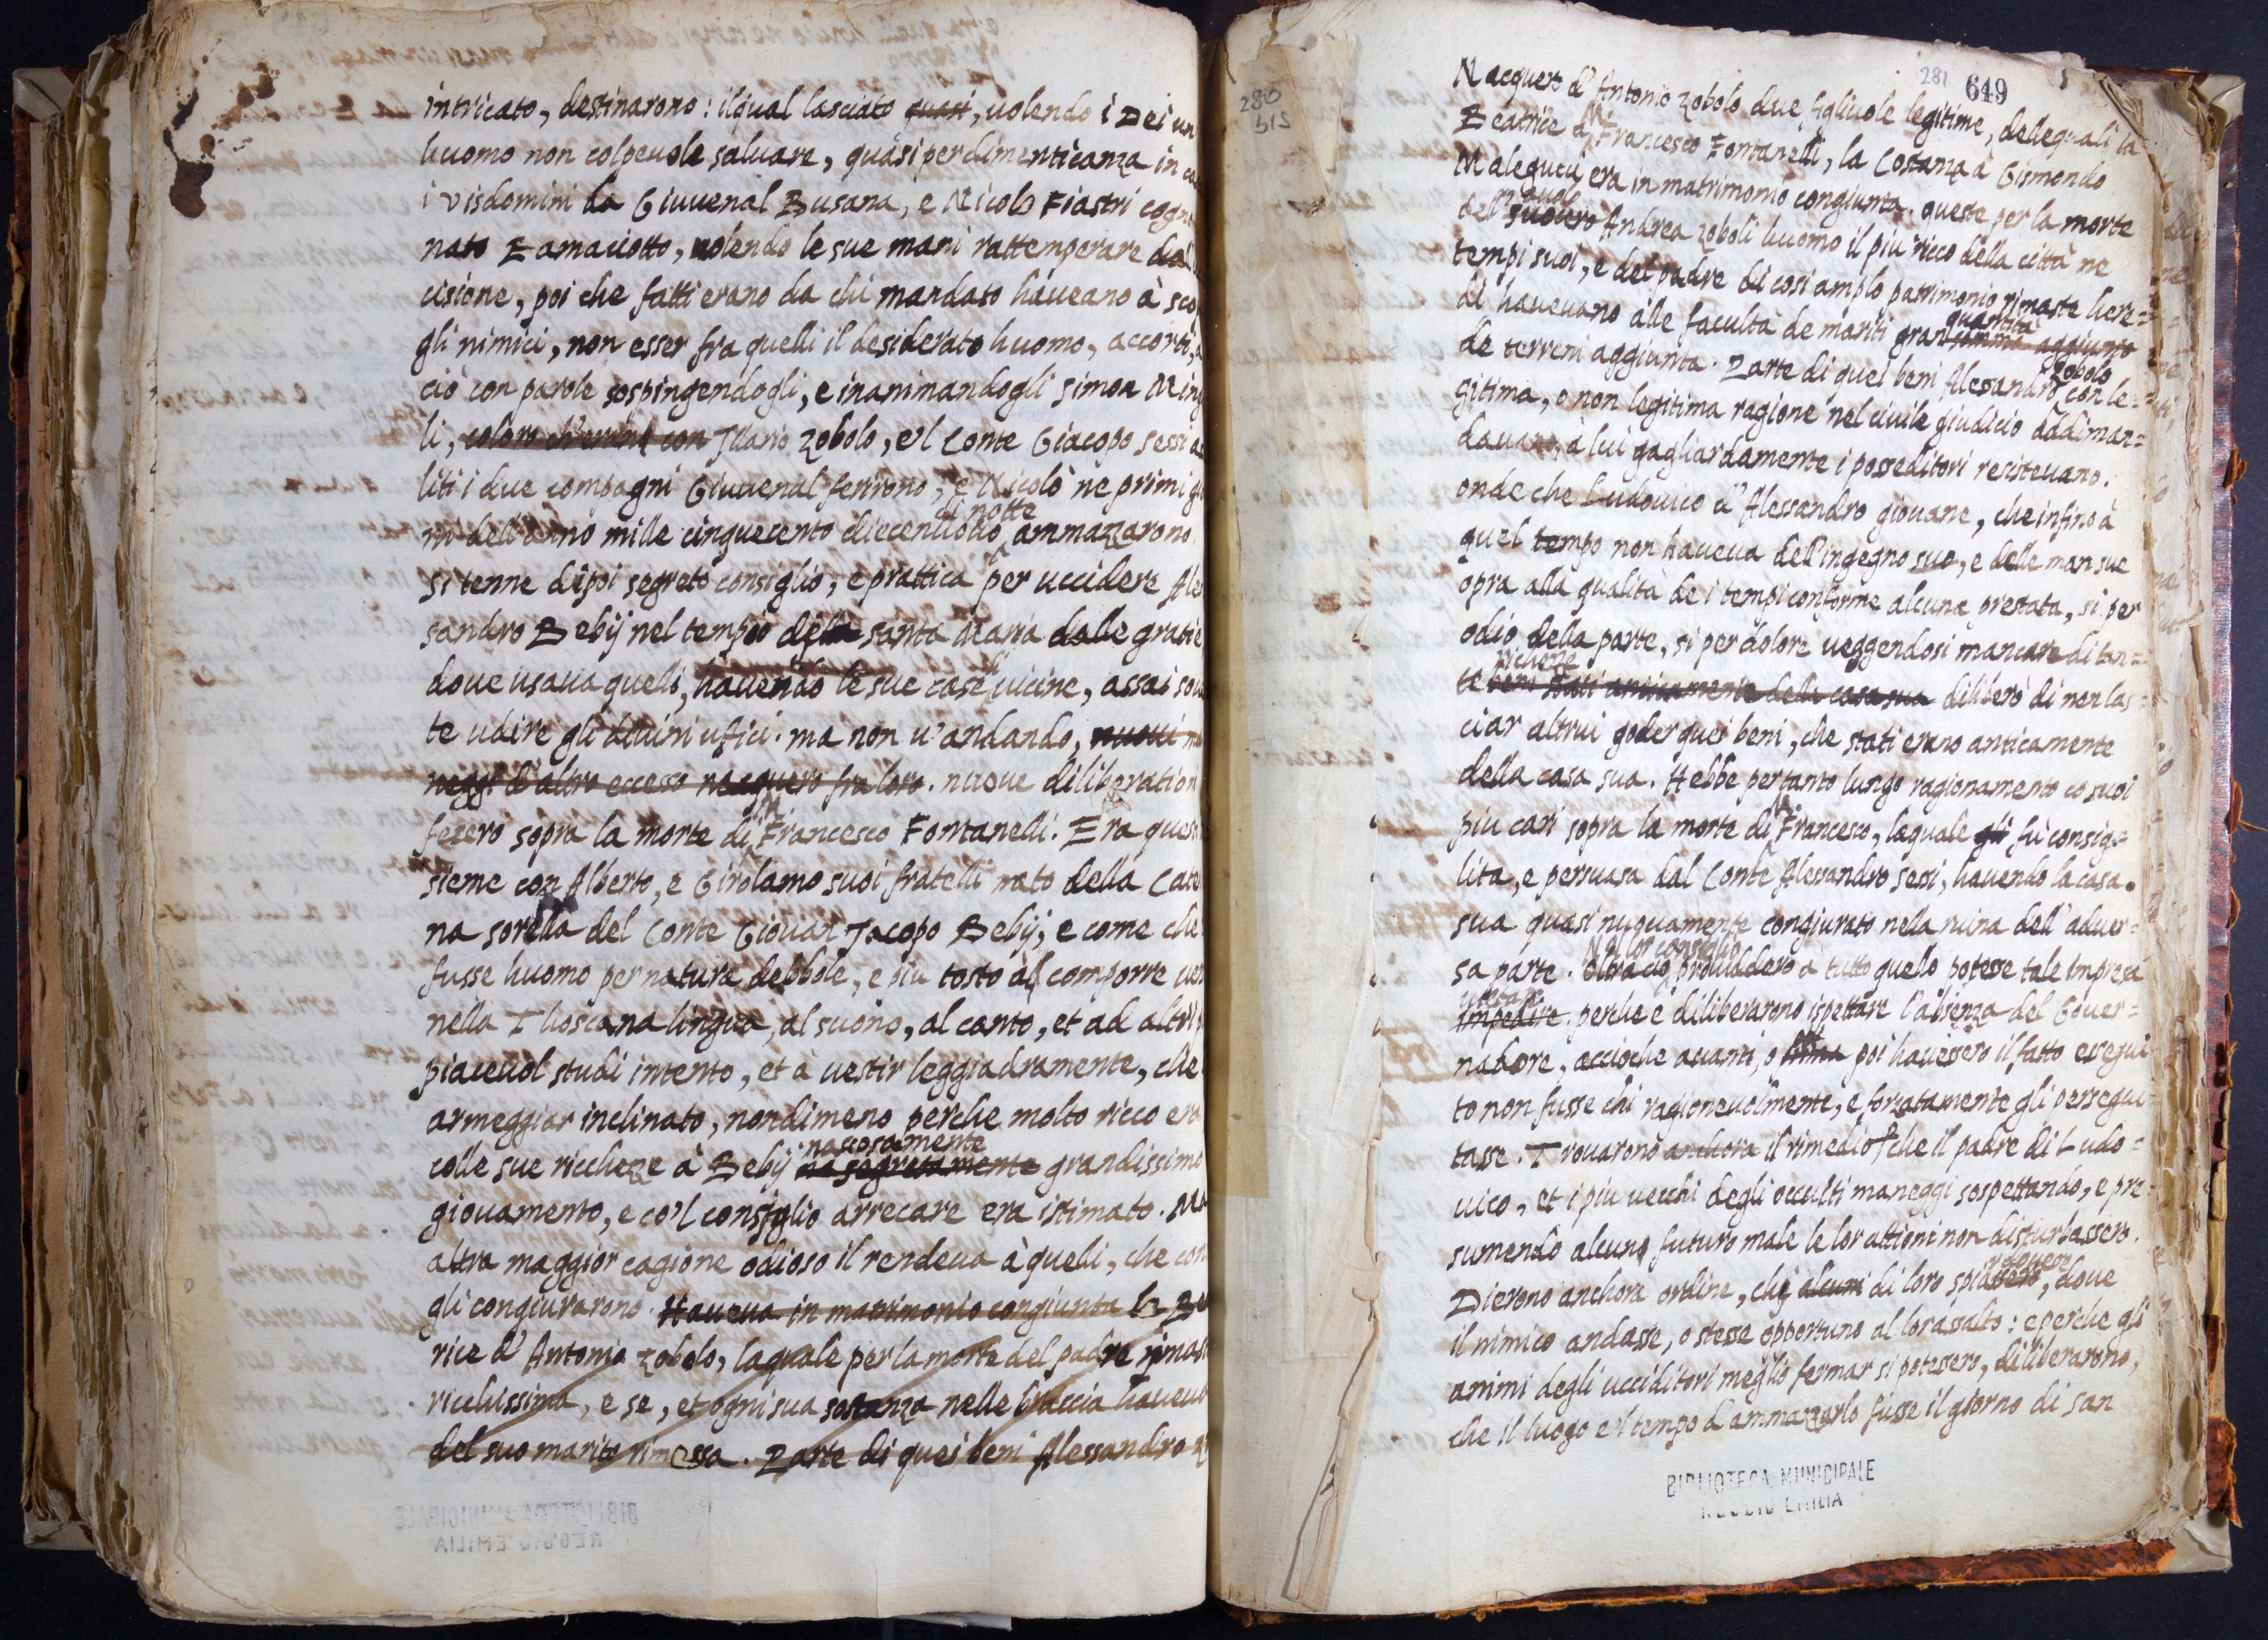 intricato, destinarono: ilqual lasciato quasi, uolendo i Dei un
huomo non colpeuole saluare, quasi per dimenticanza in
i visdomini da Giuuenal Busana, e Nicolo Fiastri
nato Zamaciotto, uolendo le sue mani rattemperare
cisione, poi che fatti erano da chi mandato haueano à
gli nimici, non esser fra quelli il desiderato huomo, accorti,
ciò con parole sospingendogli, e inanimandogli Simon
li, coloro ch'erano con Ilario Zobolo, e'l Conte Giacopo Sessi
liti i due compagni Giuuenal ferirono, e Nicolò ne primi
di notte
ni dell'anno mille cinquecento diecenuoue ammazzarono.
Si tenne dipoi segreto consiglio, e prattica per uccidere
sandro Bebij nel tempio della santa Maria dalle gratie
doue usaua quelli, hauendo le sue case uicine, assai
te udire gli diuini ufici. ma non u'andando, nuoui
neggi d'altro eccesso nacquero fra loro. nuoue diliberation
M.
fecero sopra la morte di Francesco Fontanelli. Era
sieme con Alberto, e Girolamo suoi fratelli nato della
na sorella del Conte Giouan Jacopo Bebij; e come che
fusse huomo per natura debbole, e piu tosto al comporre
nella Thoscana lingua, al suono, al canto, et ad altri
piaceuol studi intento, et à uestir leggiadramente, che
armeggiar inclinato, nondimeno perche molto ricco era
nascosamente
colle sue richeze à Bebij segretamente grandissimo
giouamento, e co'l consiglio arrecare era istimato. Ma
altra maggior cagione odioso il rendeua à quelli, che
gli congiurarono. Haueua in matrimonio congiunta la
rice d'Antonio Zobolo, laquale per la morte del padre
ricchissima, e se, et ogni sua sostanza nelle braccia
del suo marito rimessa. Parte di quei beni Alessandro
280
515
281 649
Nacquero d'Antonio Zobolo due figliuole legitime, dellequali la
Beatrice à M. Francesco Fontanelli, la Costanza à Gismondo
Malegucii era in matrimonio congiunta. queste per la morte
dell' Andrea Zoboli huomo il piu ricco della città ne
tempi suoi, e del padre di così amplo patrimonio rimaste here=
quantità
di haueuano alle facultà de mariti gran aggiunto
de terreni aggiunta. Parte di quei beni Alessandro Zobolo con le=
gitima, o non legitima ragione nel ciuile giudicio addiman=
daua, à lui gagliardamente i posseditori resisteuano.
onde che Ludouico d'Alessandro giouane, che infino à
quel tempo non haueua dell'ingegno suo, e delle man sue
opra alla qualità de i tempi conforme alcuna prestata, si per
odio della parte, si per dolore ueggendosi mancare di tan=
richeze
te beni stati anticamente della casa sua diliberò di non las=
ciar altrui goder quei beni, che stati erano anticamente
della casa sua. Hebbe pertanto lungo ragionamento co suoi
M.
piu cari sopra la morte di Francesco, laquale gli fù consig=
lita, e persuasa dal Conte Alessandro Sessi, hauendo la casa
sua quasi nuouamente congiurato nella ruina dell'aduer=
Nel lor consiglio
sa parte. Oltra ciò prouiddero à tutto quello potesse tale impresa
uietare
impedire. perche e diliberarono ispettare l'absenza del Gouer=
natore, accioche auanti, o poi hauessero il fatto essegui=
to non fusse chi ragioneuolmente, e forzatamente gli persegui=
tasse. Trouarono anchora il rimedio che il padre di Ludo=
uico, et i piu uecchi degli occulti maneggi sospettando, e pre=
sumendo alcuno futuro male le lor attioni non disturbassero.
Dierono anchora ordine, che alcuni di loro spiassero, doue
il nimico andasse, o stesse opportuno al lor assalto: e perche gli
animi degli ucciditori meglio fermar si potessero, diliberarono,
che il luogo e'l tempo d'ammazzarlo fusse il giorno di san
BIBLIOTECA MUNICIPALE
REGGIO EMILIA